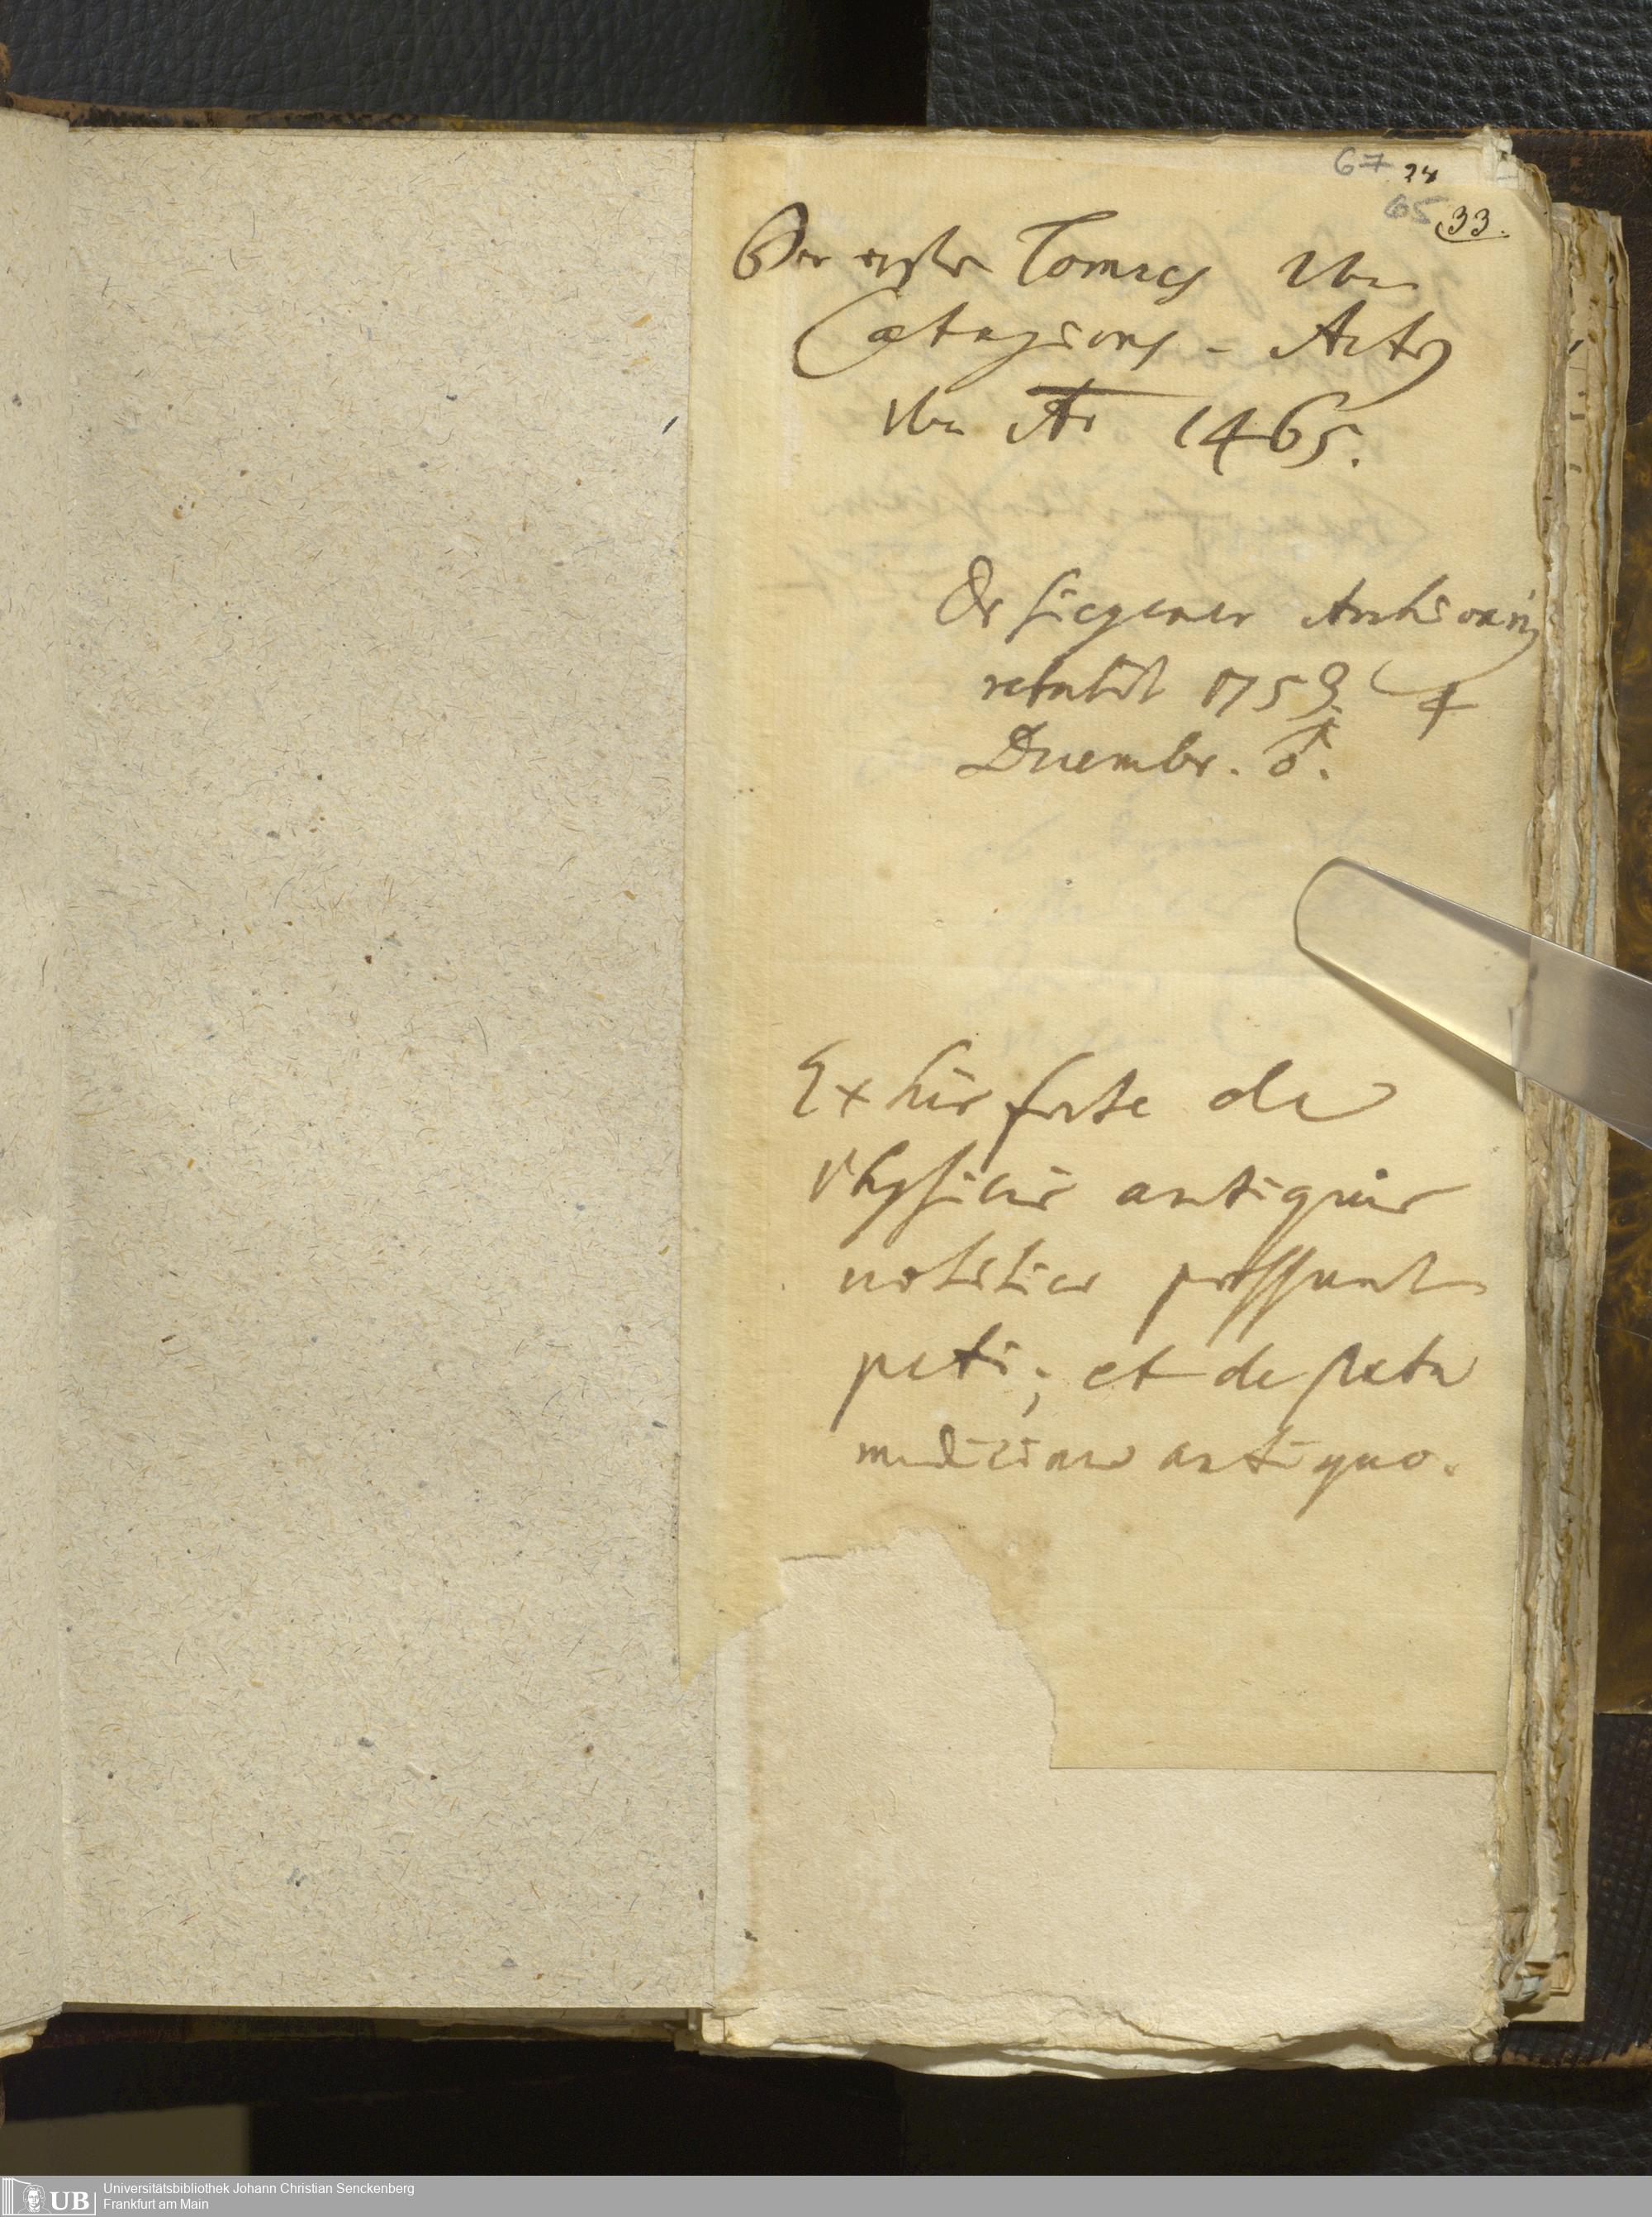 67 24
65 33.
Der erste Tomus von
Cotations-Acten
von Ao 1465.
Dr Siegener Archivarius
retulit 1758. 4
Decembr. ♂.
Ex his forte de
Physicis antiquis
notitiae possunt
peti; et de statu
medicinae antiquo.
UB
Universitätsbibliothek Johann Christian Senckenberg
Frankfurt am Main